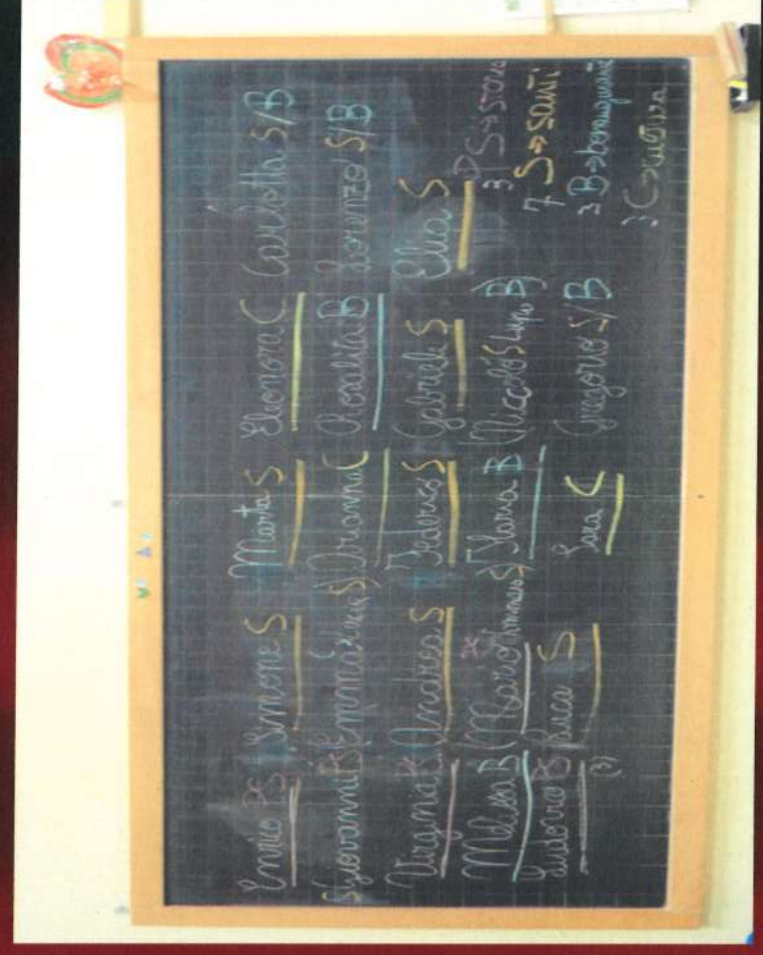 Enrico PS Simone S Marta S Eleonora C Carlotta S/B
Giovanni Emma Arianna C Rosalia B Lorenzo S/B
Virginia Andrea S Federico S Gabriele S Elia S
Melissa B (Mario S) Ilaria B (Niccolò S Lupo B)
Ludovico Luca S Sara C Gregorio S/B
(3)
3 S→storie
7 S→santi
3 B→
3 C→